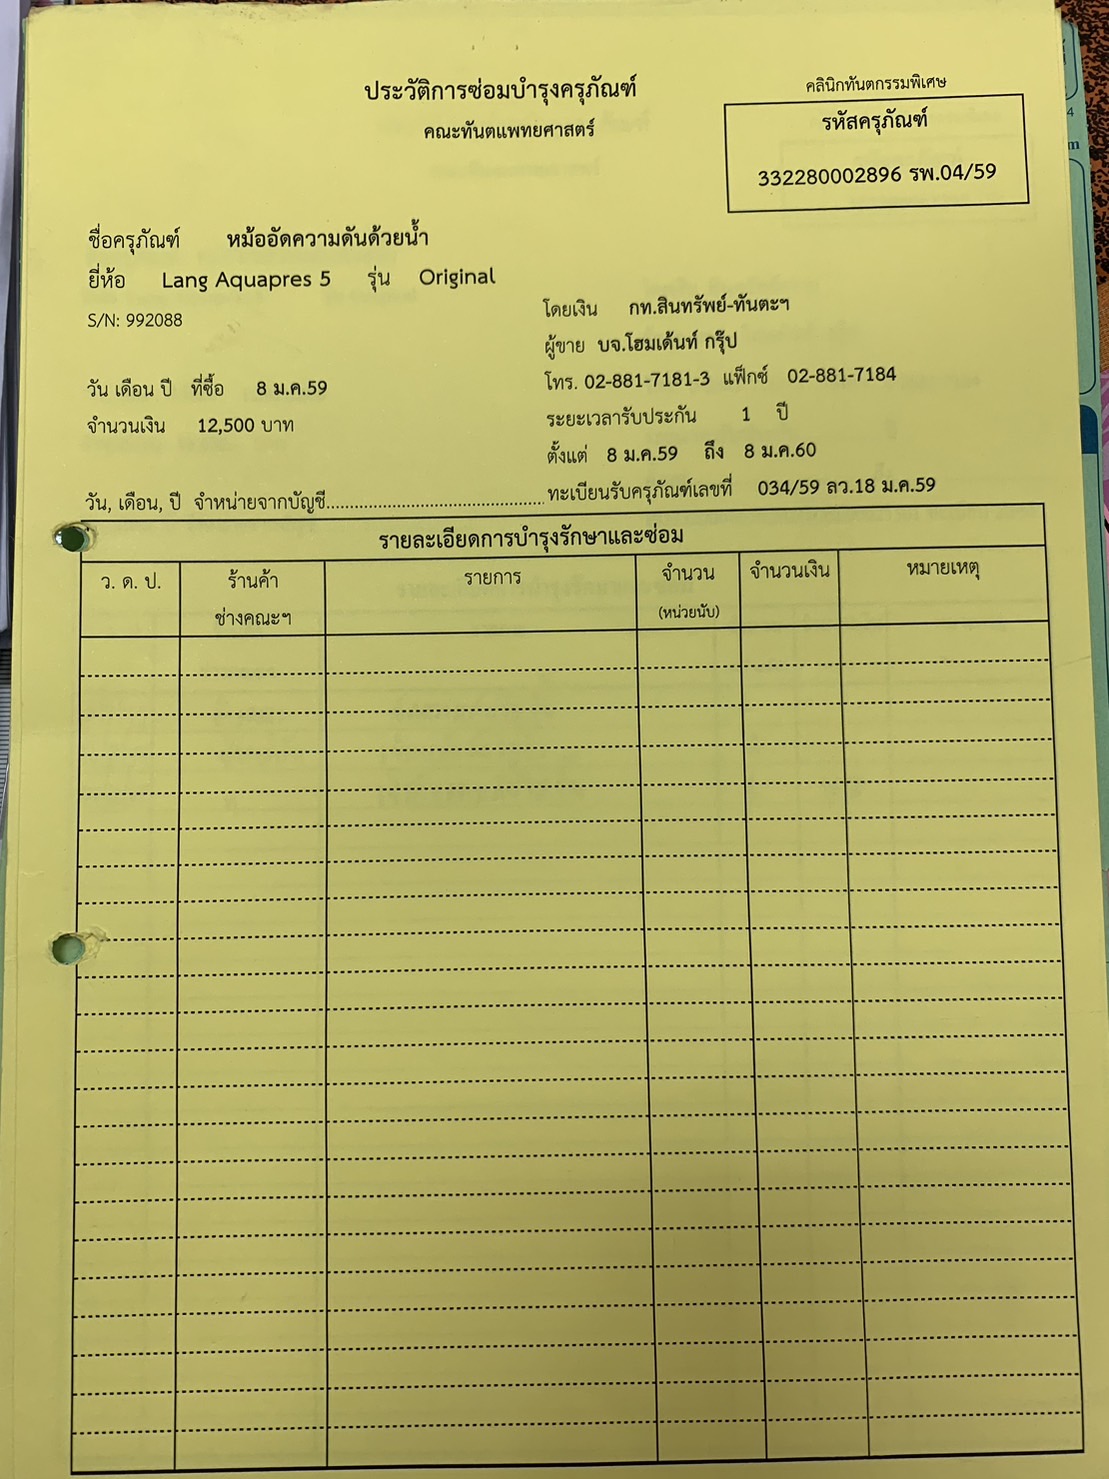 ประวัติการซ่อมบำรุงครุภัณฑ์
คณะทันตแพทยศาสตร์
คลินิกทันตกรรมพิเศษ
รหัสครุภัณฑ์
332280002896 รพ.04/59
ชื่อครุภัณฑ์ หม้ออัดความดันด้วยน้ำ
ยี่ห้อ Lang Aquapres 5 รุ่น Original
S/N: 992088
โดยเงิน กท.สินทรัพย์-ทันตะฯ
ผู้ขาย บจ.โฮมเด้นท์ กรุ๊ป
วัน เดือน ปี ที่ซื้อ 8 ม.ค.59
โทร. 02-881-7181-3 แฟ็กซ์ 02-881-7184
จำนวนเงิน 12,500 บาท
ระยะเวลารับประกัน 1 ปี
ตั้งแต่ 8 ม.ค.59 ถึง 8 ม.ค.60
วัน, เดือน, ปี จำหน่ายจากบัญชี........................................ทะเบียนรับครุภัณฑ์เลขที่ 034/59 ลว.18 ม.ค.59
รายละเอียดการบำรุงรักษาและซ่อม
ว. ด. ป. ร้านค้า รายการ จำนวน จำนวนเงิน หมายเหตุ
ช่างคณะฯ (หน่วยนับ)